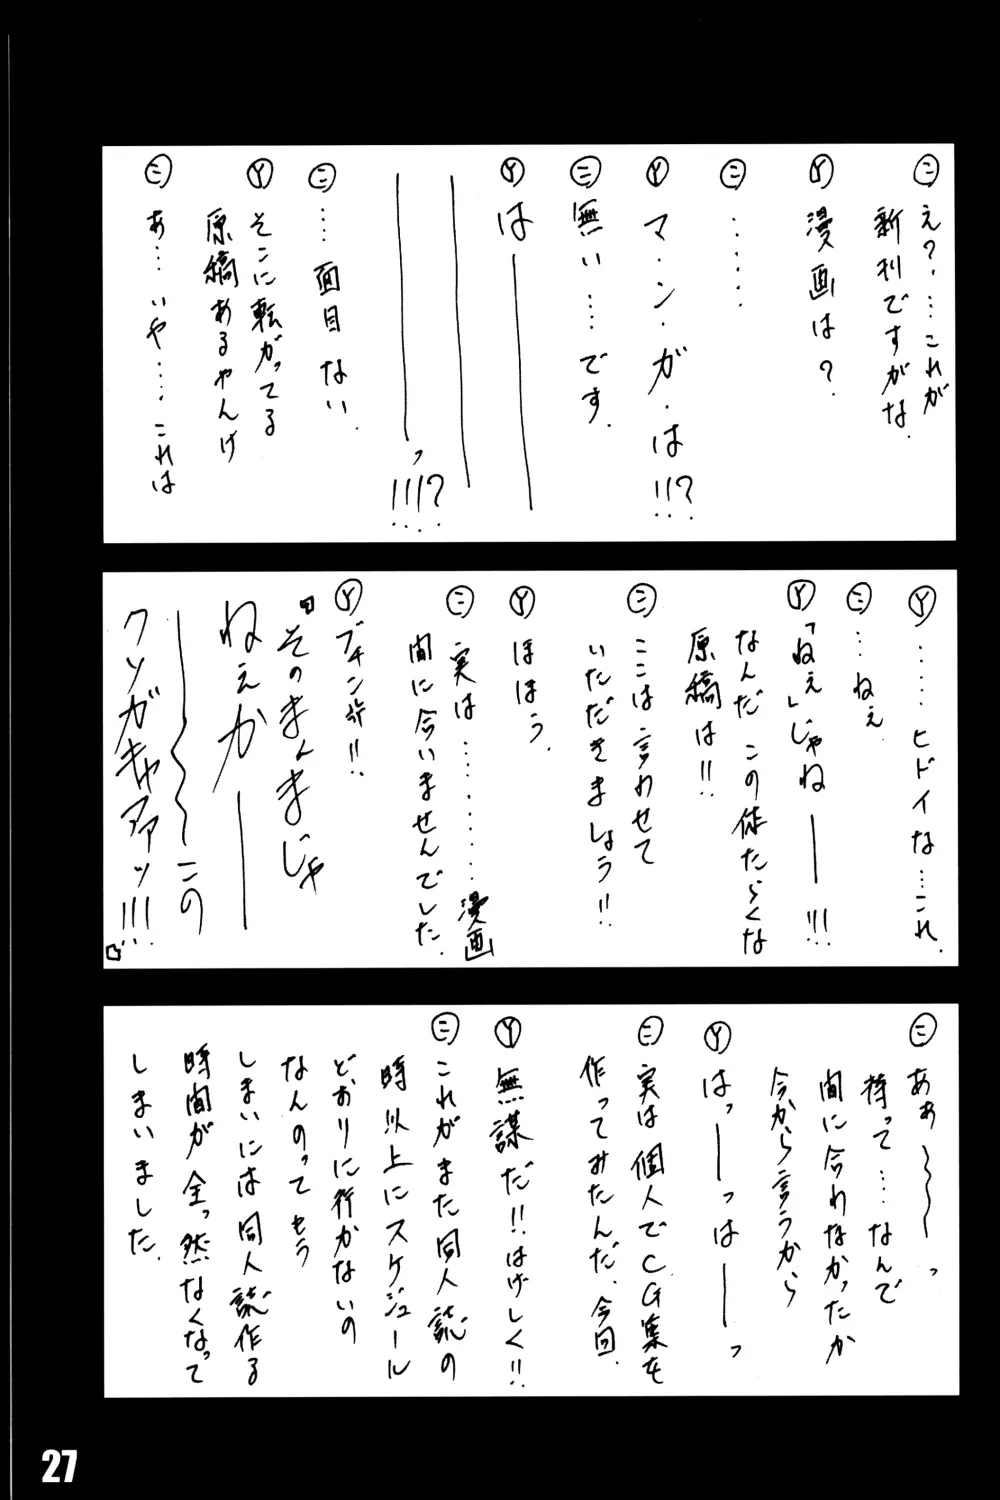 ㋥ え?…これが
新刊ですがな.
Ⓨ 漫画は?
㋥ ……
Ⓨ マ・ン・ガ・は!!?
㋥ 無い…です.
Ⓨ は――――――っ!!!?
㋥ …面目ない.
Ⓨ そこに転がってる
原稿あるやんけ
㋥ あ…いや…これは
Ⓨ ……ヒドイな…これ.
㋥ …ねぇ
Ⓨ 「ねぇ」じゃね――!!!
なんだ この体たらくな
原稿は!!
㋥ ここは言わせて
いただきましょう!!
Ⓨ ほほう.
㋥ 実は………漫画
間に合いませんでした.
Ⓨ ブチン
"そのまんまじゃ
ねぇか――
――~~~この
クソガキャアアッ!!!
㋥ ああ~~~っ
待って…なんで
間に合わなかったか
今から言うから
Ⓨ はっ――っは――っ
㋥ 実は個人でCG集を
作ってみたんだ.今回.
Ⓨ 無謀だ!!はげしく!!
㋥ これがまた同人誌の
時以上にスケジュール
どおりに行かないの
なんのって もう
しまいには同人誌作る
時間が全っ然なくなって
しまいました.
27